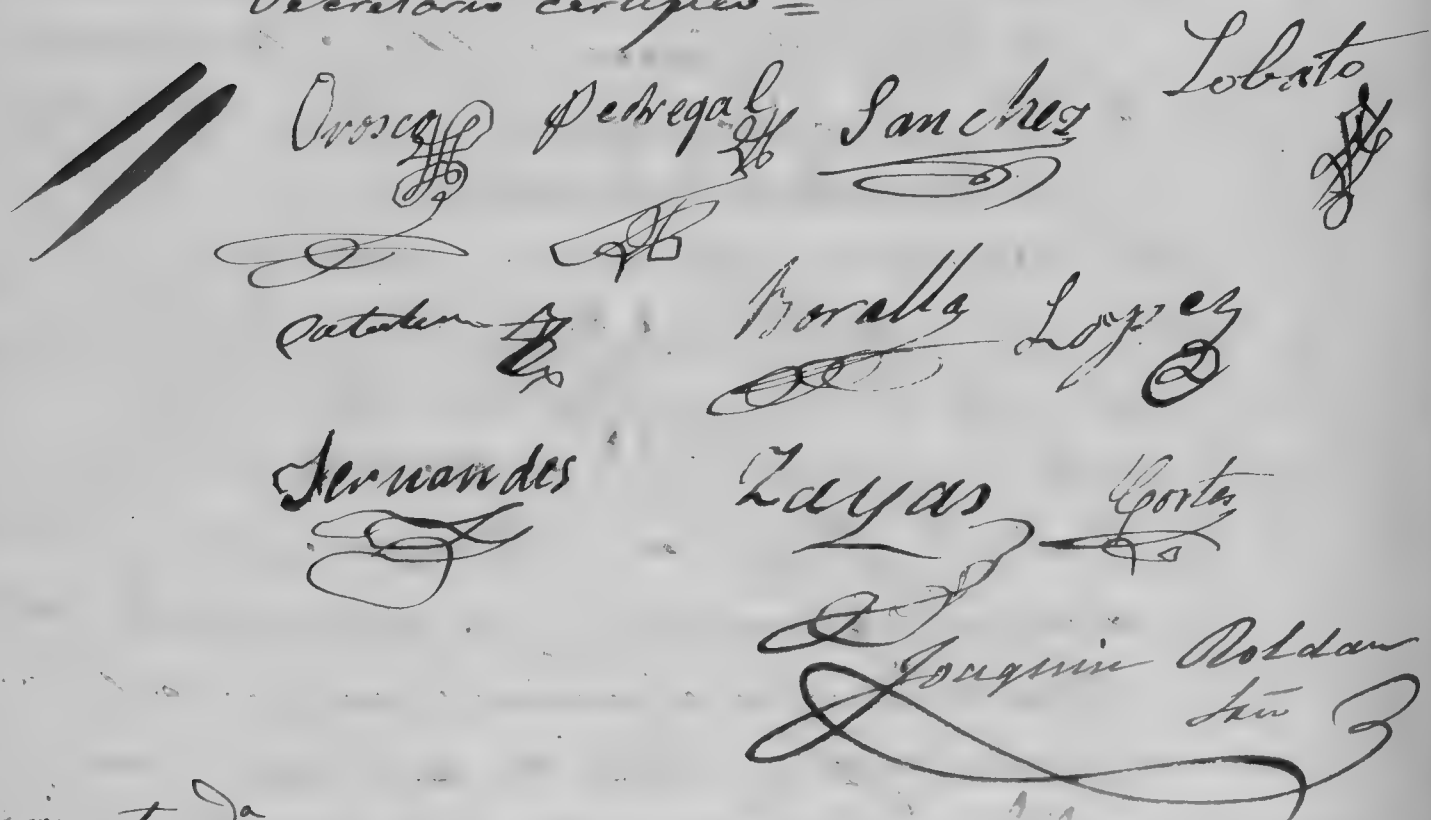 Secretario certifico =
Orosco Pedregal Sanchez Lobato
Boralla Lopez
Fernandes Zayas Cortes
Joaquin Roldan
Srio